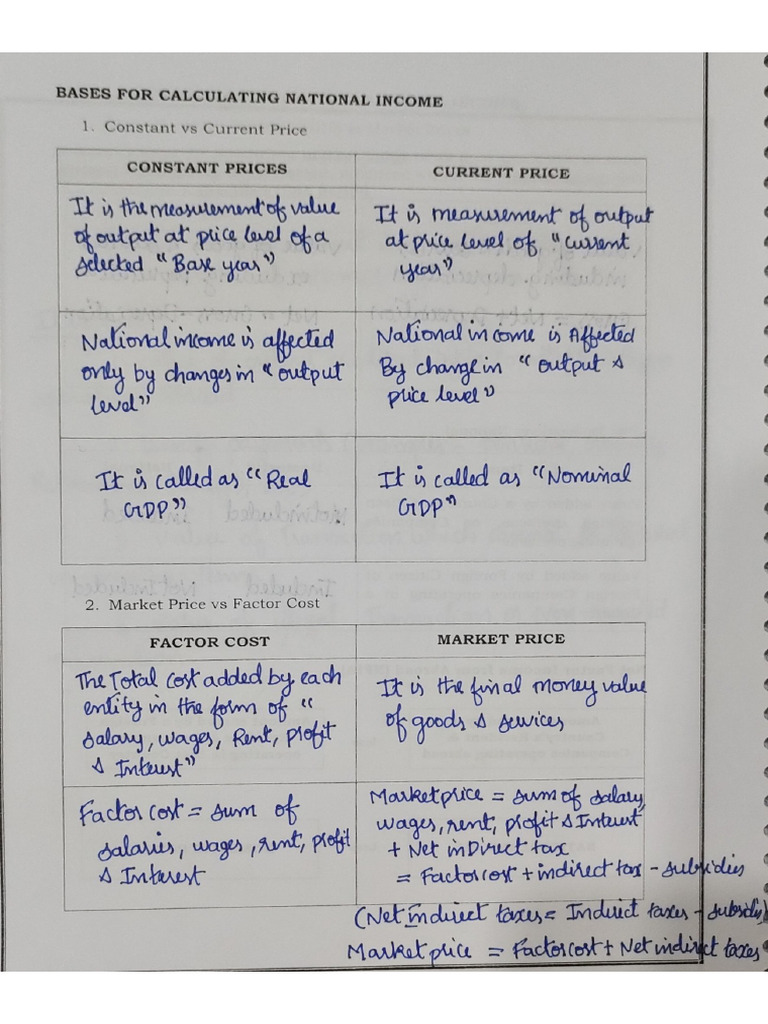 BASES FOR CALCULATING NATIONAL INCOME
1. Constant vs Current Price
CONSTANT PRICES
CURRENT PRICE
It is the measurement of value
of output at price level of a
selected "Base year"
It is measurement of output
at price level of "current
year"
National income is affected
only by changes in "output
level"
National income is Affected
By change in "output &
price level"
It is called as "Real
GDP"
It is called as "Nominal
GDP"
2. Market Price vs Factor Cost
FACTOR COST
MARKET PRICE
The Total cost added by each
entity in the form of "
salary, wages, Rent, profit
& Interest"
It is the final money value
of goods & services
Factor cost = sum of
salaries, wages, rent, profit
& Interest
Market price = sum of salary,
wages, rent, profit & Interest
+ Net inDirect tax
= Factor cost + indirect tax - subsidies
(Net Indirect taxes = Indirect taxes - subsidies)
Market price = Factor cost + Net indirect taxes